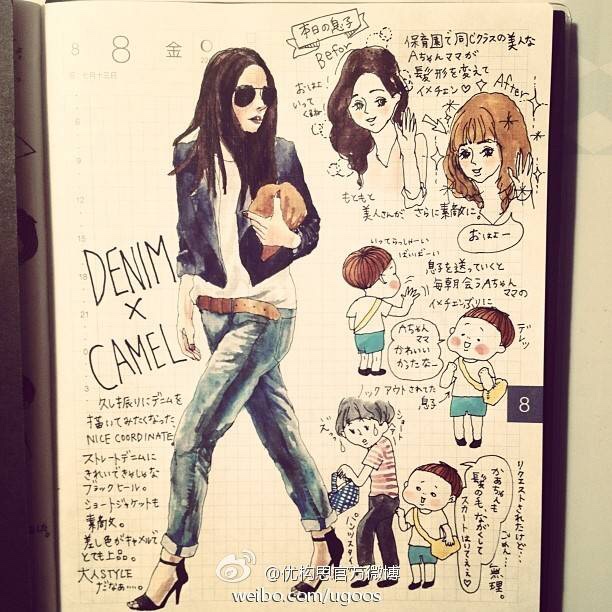 8
8
金
七月十三日
本日の息子
Befor
おはよ!
いって
くるね
保育園で同じクラスの美人な
Aちゃんママが
髪形を変えて
イメチェン♡
After
もともと
美人さんが、さらに素敵に。
おはよー
いってらっしゃーい
ばいばーい
息子を送っていくと
毎朝会うAちゃん
ママの
イメチェンぶりに
デレッ
Aちゃん
ママ
かわいい
かったなー
ノックアウトされてた
息子
8
DENIM
×
CAMEL
久し振りにデニムを
描いてみたくなった
NICE COORDINATE
ストレートデニムに
きれいできゃしゃな
ブラックヒール。
ショートジャケットも
素敵。
差し色がキャメルで
とても上品。
大人STYLE
だなぁ…。
えっ
ショート
ヘア
パンツスタイル
かあちゃんも
髪の毛、ながくして
スカートはいてええ♡
リクエストされたけど…
ごめん…
無理。
@优构思官方微博
weibo.com/ugoos